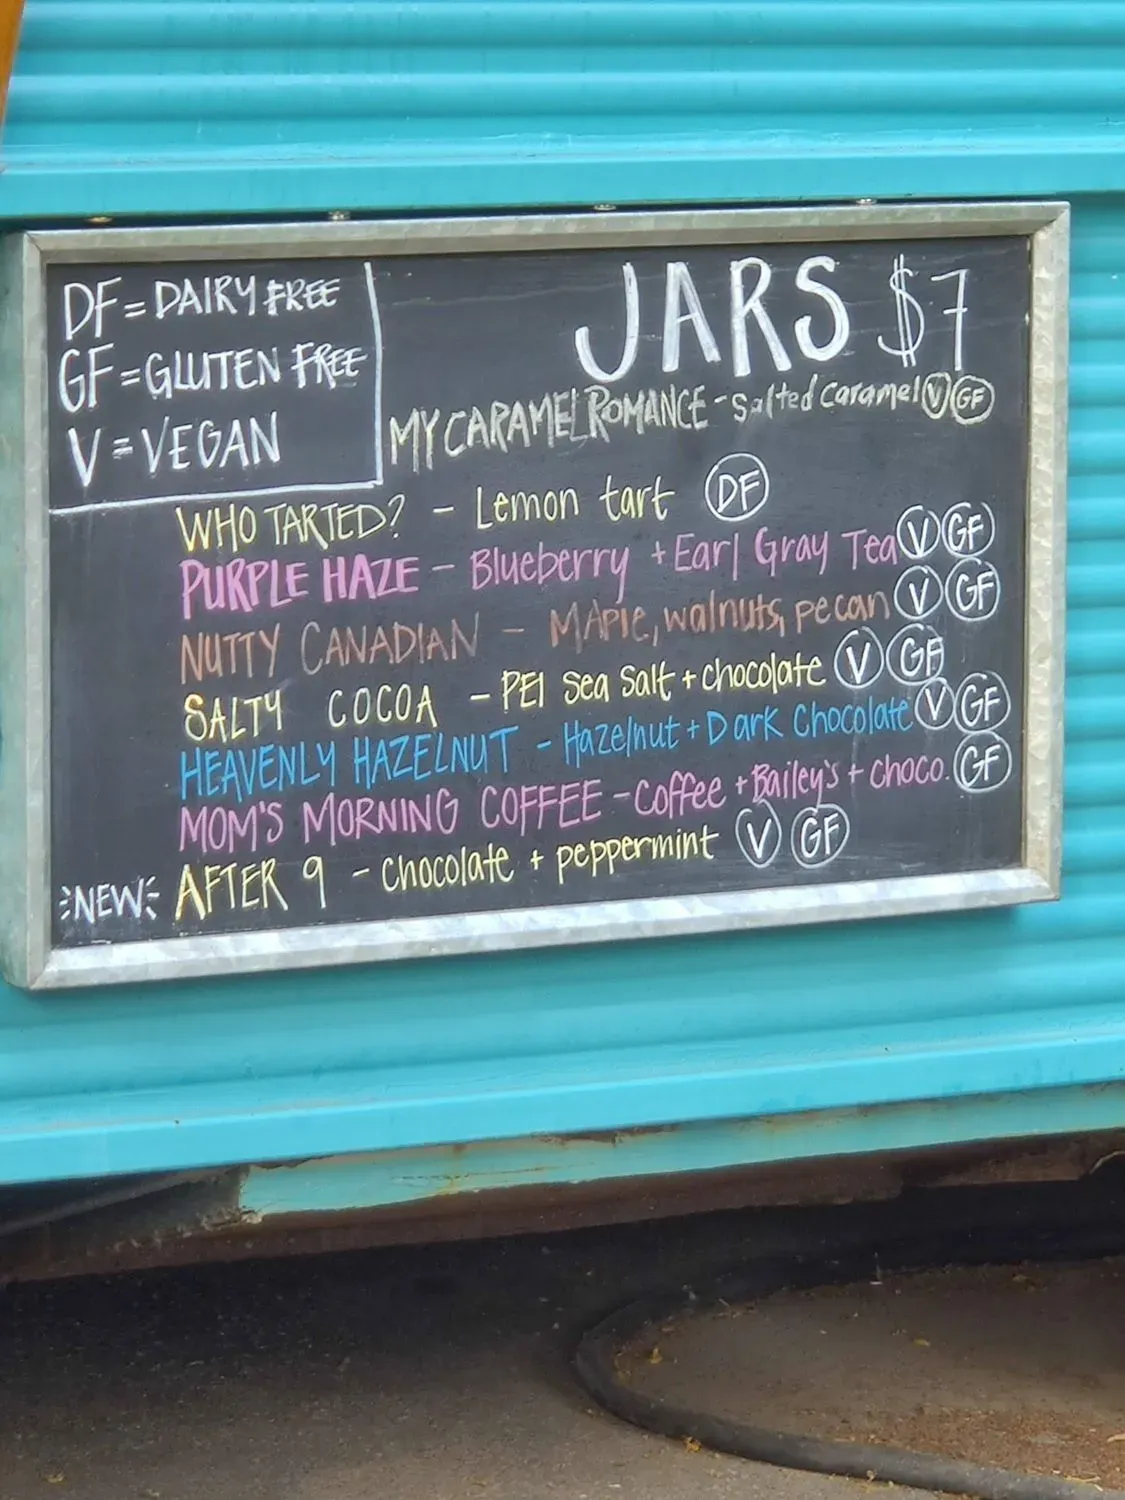 DF = DAIRY FREE
GF = GLUTEN FREE
V = VEGAN
JARS $7
MY CARAMEL ROMANCE - Salted Caramel V GF
WHO TARTED? - Lemon tart DF
PURPLE HAZE - Blueberry + Earl Gray Tea V GF
NUTTY CANADIAN - MAPle, walnuts, pecan V GF
SALTY COCOA - PEI Sea Salt + chocolate V GF
HEAVENLY HAZELNUT - Hazelnut + Dark Chocolate V GF
MOM'S MORNING COFFEE - Coffee + Bailey's + choco. GF
NEW AFTER 9 - Chocolate + peppermint V GF